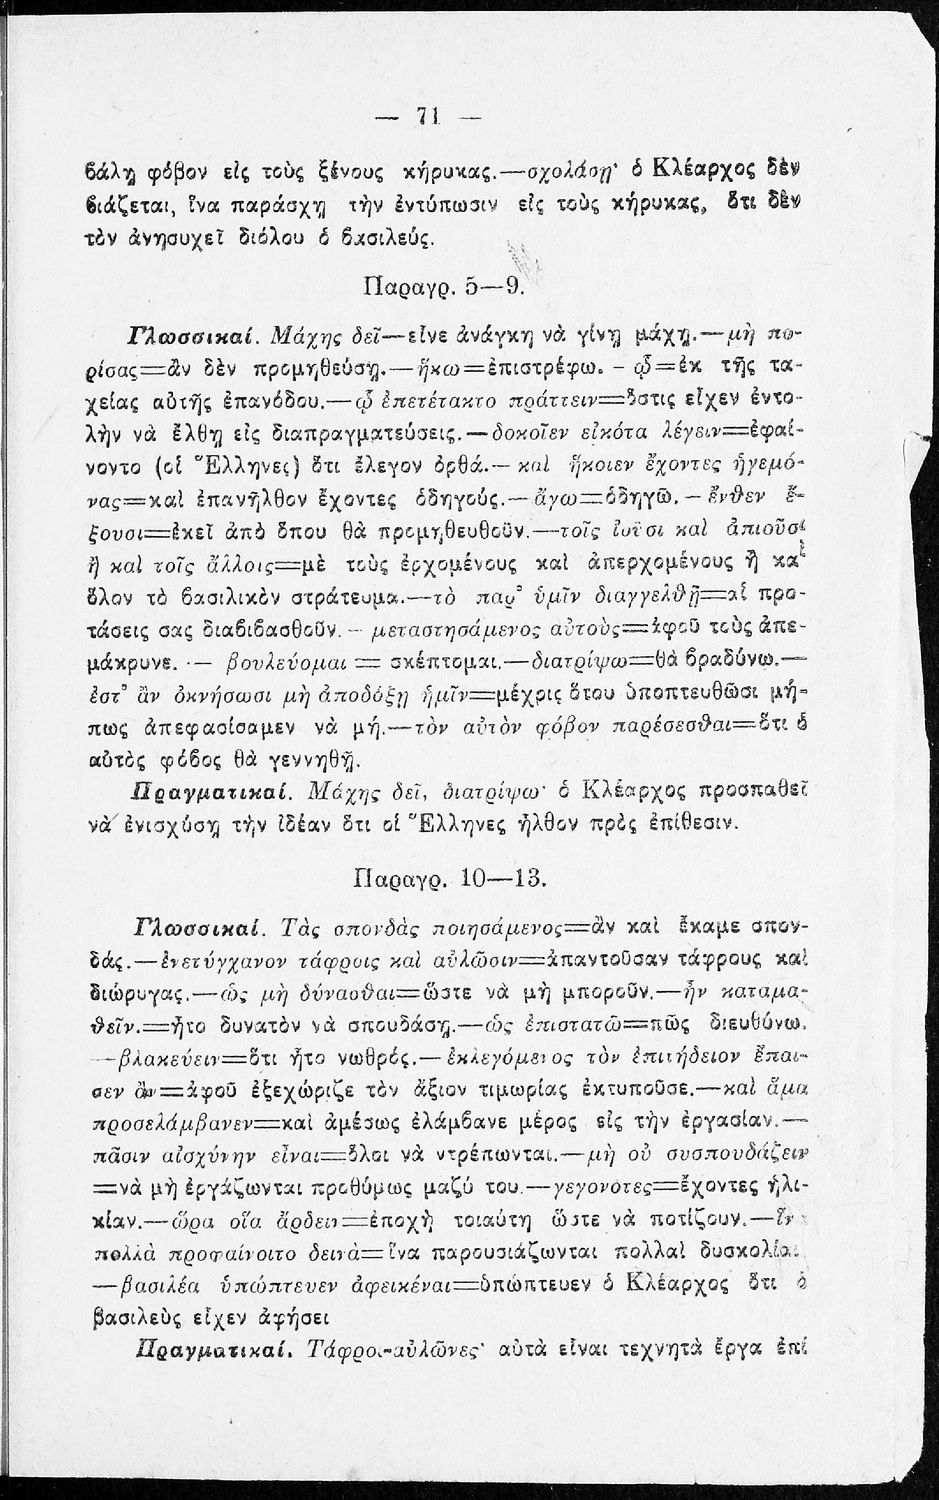 — 71 —
βάλῃ φόβον εἰς τοὺς ξένους κήρυκας.—σχολάσῃ· ὁ Κλέαρχος δὲν
βιάζεται, ἵνα παράσχῃ τὴν ἐντύπωσιν εἰς τοὺς κήρυκας, ὅτι δὲν
τὸν ἀνησυχεῖ διόλου ὁ βασιλεύς.
Παραγρ. 5—9.
Γλωσσικαί. Μάχης δεῖ—εἶνε ἀνάγκη νὰ γίνῃ μάχη.—μὴ πο-
ρίσας=ἂν δὲν προμηθεύσῃ.—ἥκω=ἐπιστρέφω. - ᾧ=ἐκ τῆς τα-
χείας αὐτῆς ἐπανόδου.—ᾧ ἐπετέτακτο πράττειν=ὅστις εἶχεν ἐντο-
λὴν νὰ ἔλθῃ εἰς διαπραγματεύσεις.—δοκοῖεν εἰκότα λέγειν=ἐφαί-
νοντο (οἱ Ἕλληνες) ὅτι ἔλεγον ὀρθά.—καὶ ἥκοιεν ἔχοντες ἡγεμό-
νας=καὶ ἐπανῆλθον ἔχοντες ὁδηγούς.—ἄγω=ὁδηγῶ.—ἔνθεν ἕ-
ξουσι=ἐκεῖ ἀπὸ ὅπου θὰ προμηθευθοῦν.—τοῖς ἰοῦσι καὶ ἀπιοῦσι
ἢ καὶ τοῖς ἄλλοις=μὲ τοὺς ἐρχομένους καὶ ἀπερχομένους ἢ καὶ
ὅλον τὸ βασιλικὸν στράτευμα.—τὸ παρ' ὑμῖν διαγγελθῇ=αἱ προ-
τάσεις σας διαβιβασθοῦν.—μεταστησάμενος αὐτοὺς=ἀφοῦ τοὺς ἀπε-
μάκρυνε.—βουλεύομαι = σκέπτομαι.—διατρίψω=θὰ βραδύνω.—
ἔστ' ἂν ὀκνήσωσι μὴ ἀποδόξῃ ἡμῖν=μέχρις ὅτου ὑποπτευθῶσι μή-
πως ἀπεφασίσαμεν νὰ μή.—τὸν αὐτὸν φόβον παρέσεσθαι=ὅτι ὁ
αὐτὸς φόβος θὰ γεννηθῇ.
Πραγματικαί. Μάχης δεῖ, διατρίψω· ὁ Κλέαρχος προσπαθεῖ
νὰ ἐνισχύσῃ τὴν ἰδέαν ὅτι οἱ Ἕλληνες ἦλθον πρὸς ἐπίθεσιν.
Παραγρ. 10—13.
Γλωσσικαί. Τὰς σπονδὰς ποιησάμενος=ἂν καὶ ἔκαμε σπον-
δάς.—ἐνετύγχανον τάφροις καὶ αὐλῶσιν=ἀπαντοῦσαν τάφρους καὶ
διώρυγας.—ὡς μὴ δύνασθαι=ὥστε νὰ μὴ μποροῦν.—ἦν καταμα-
θεῖν.=ἦτο δυνατὸν νὰ σπουδάσῃ.—ὡς ἐπιστατῶ=πῶς διευθύνω.
—βλακεύειν=ὅτι ἦτο νωθρός.—ἐκλεγόμενος τὸν ἐπιτήδειον ἔπαι-
σεν ἂν=ἀφοῦ ἐξεχώριζε τὸν ἄξιον τιμωρίας ἐκτυποῦσε.—καὶ ἅμα
προσελάμβανεν=καὶ ἀμέσως ἐλάμβανε μέρος εἰς τὴν ἐργασίαν.—
πᾶσιν αἰσχύνην εἶναι=ὅλοι νὰ ντρέπωνται.—μὴ οὐ συσπουδάζειν
=νὰ μὴ ἐργάζωνται προθύμως μαζύ του.—γεγονότες=ἔχοντες ἡλι-
κίαν.—ὥρα οἵα ἄρδειν=ἐποχὴ τοιαύτη ὥστε νὰ ποτίζουν.—ἵνα
πολλὰ προφαίνοιτο δεινὰ=ἵνα παρουσιάζωνται πολλαὶ δυσκολίαι
—βασιλέα ὑπώπτευεν ἀφεικέναι=ὑπώπτευεν ὁ Κλέαρχος ὅτι ὁ
βασιλεὺς εἶχεν ἀφήσει
Πραγματικαί. Τάφροι-αὐλῶνες· αὐτὰ εἶναι τεχνητὰ ἔργα ἐπὶ